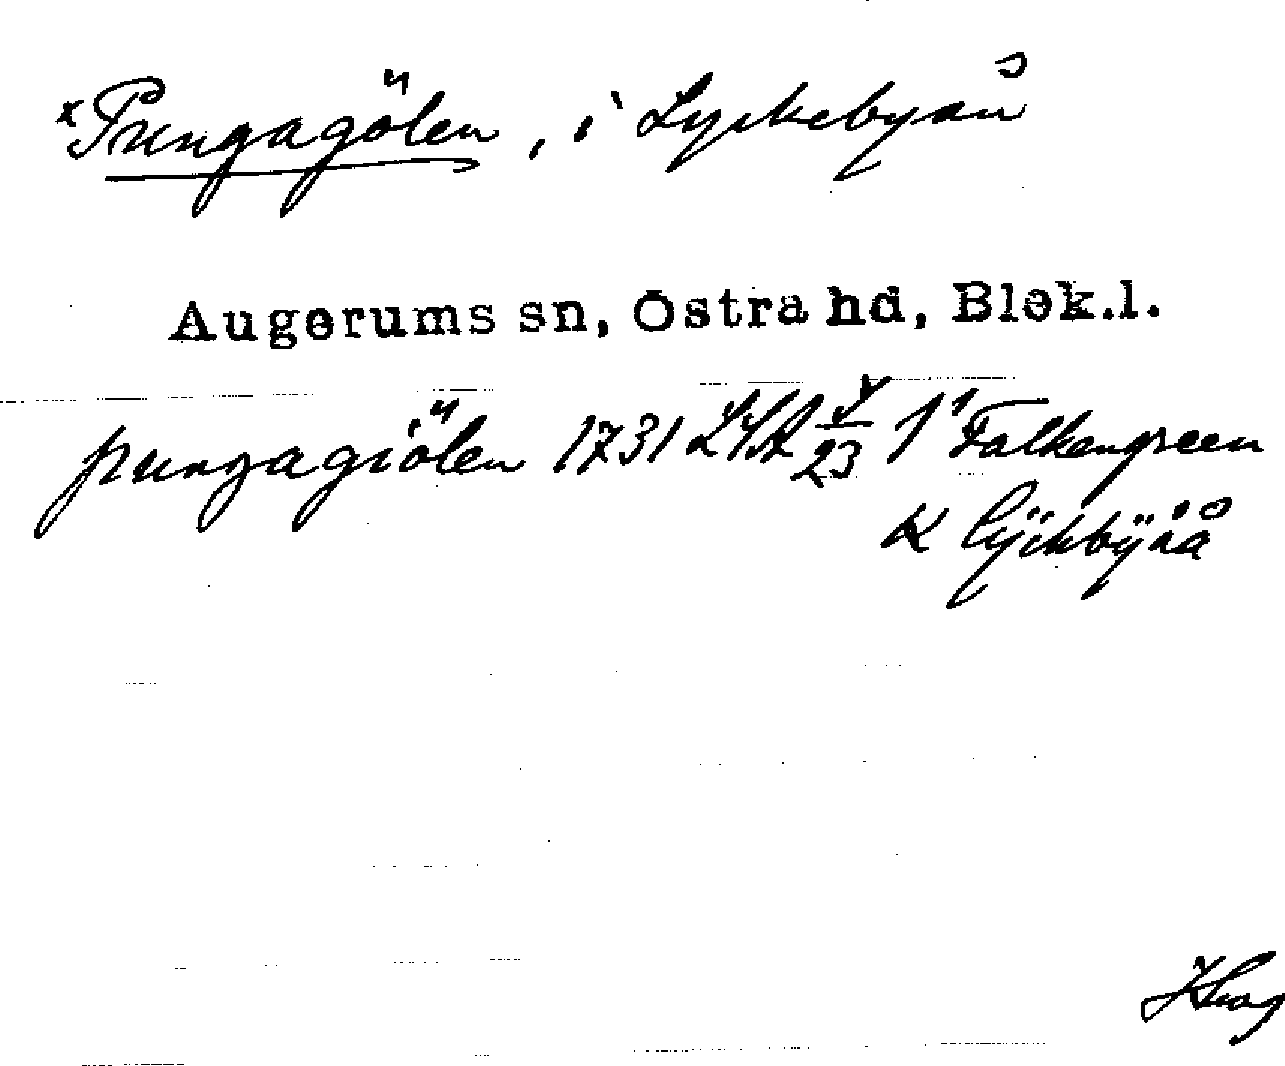 *Pungagölen, i Lyckebyån
Augerums sn, Östra hd, Blek.l.
pungagiölen 1731 LSA 23 Falkengreen
K lÿckbÿåå